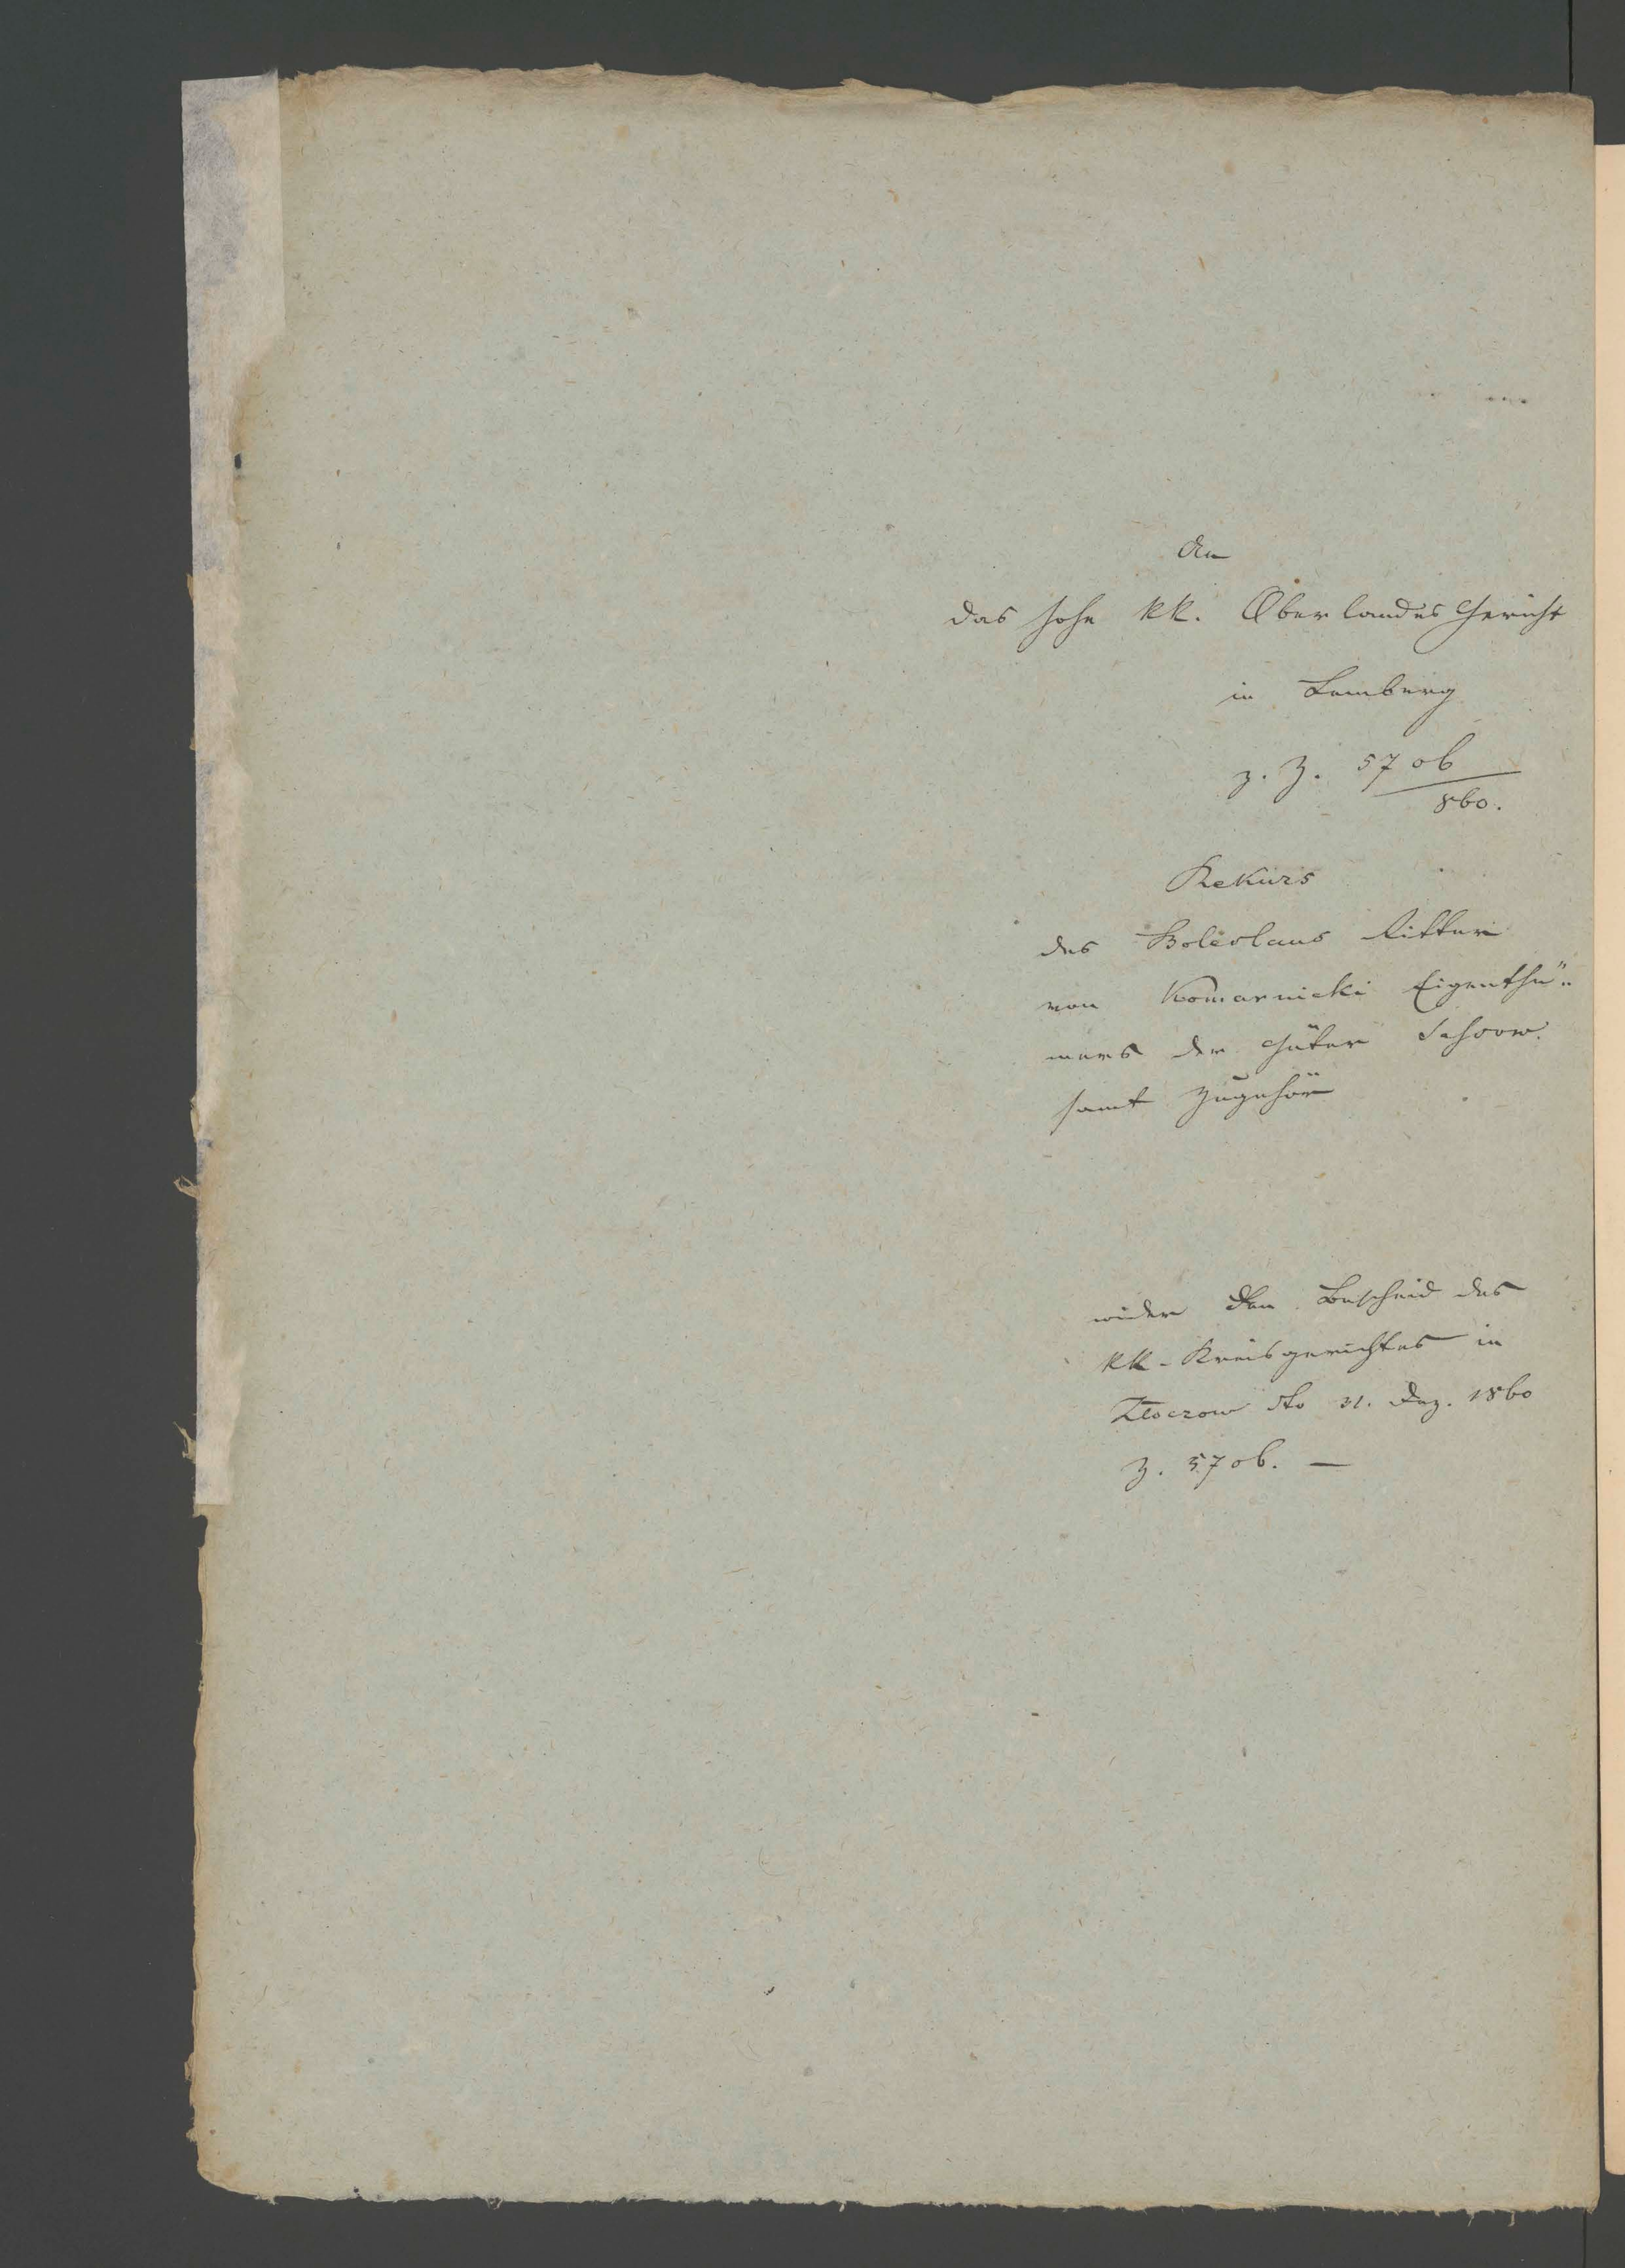 An
das hohe kk. Oberlandes Gericht
in Lemberg
z. Z. 5706
860.
Rekurs
des Boleslaus Ritter
von Komarnicki Eigenthü-
mers der Güter Sassow
samt Zugehör
wider den Bescheid des
kk. Kreisgerichtes in
Zloczow dto 31. Dez. 1860
Z. 5706. —